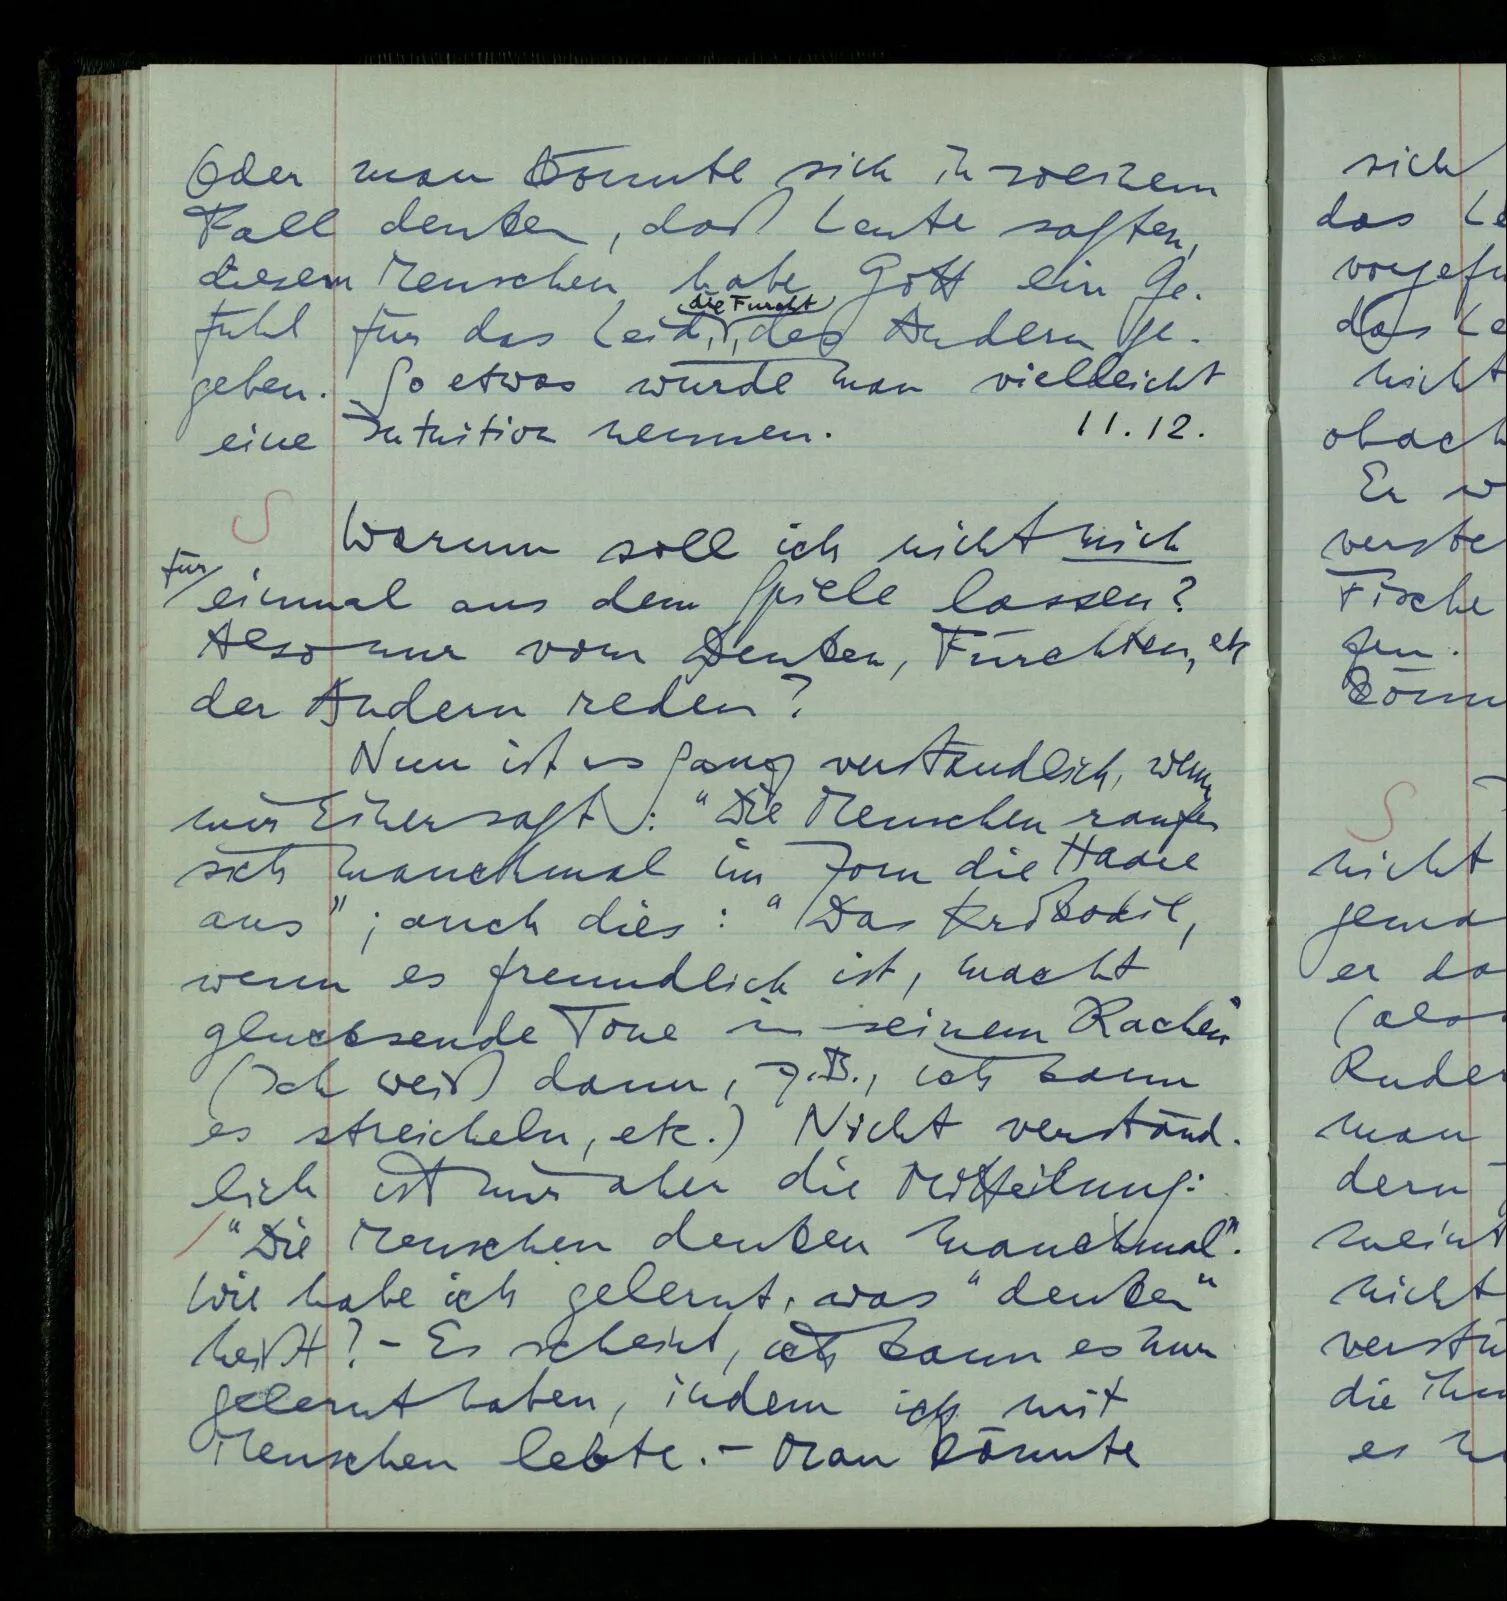 Oder man könnte sich in so einem
Fall denken, daß Leute sagten,
diesem Menschen habe Gott ein Ge-
die Furcht
fühl für das Leid, des Andern ge-
geben. So etwas würde man vielleicht
eine Intuition nennen. 11.12.
S
Warum soll ich nicht mich
für
einmal aus dem Spiele lassen?
Also nur vom Denken, Fürchten, etc
der Andern reden?
Nun ist es ganz verständlich, wenn
mir Einer sagt: "Die Menschen raufen
sich manchmal im Zorn die Haare
aus"; auch dies: "Das Krokodil,
wenn es freundlich ist, macht
glucksende Töne in seinem Rachen
(Ich weiß dann, z.B., ich kann
es streicheln, etc.) Nicht verständ-
lich ist mir aber die Mitteilung:
"Die Menschen denken manchmal".
Wie habe ich gelernt, was "denken"
heißt? – Es scheint, ich kann es nur
gelernt haben, indem ich mit
Menschen lebte. – Man könnte
sich
das Le
vorgefü
das Le
nicht
obach
Er w
verste
Fische
fen.
könn
S
nicht
gema
er da
(also
Rudel
man
dern
meint
nicht
verstü
die ihn
es